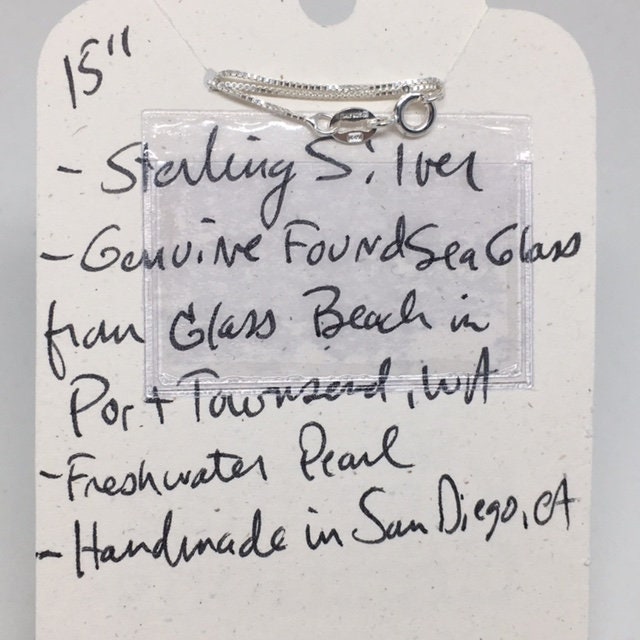 15"
- Sterling Silver
- Genuine Found Sea Glass
from Glass Beach in
Port Townsend, WA
- Freshwater Pearl
- Handmade in San Diego, CA